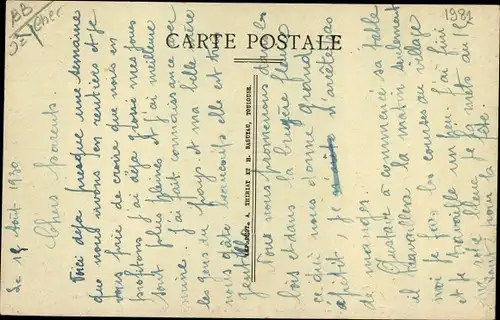 BB
Cher
1981
CARTE POSTALE
IMPRIMEUR. A. THIRIAT ET H. BASUYAU, TOULOUSE.
Le 19 Août 1930
Chers parents.
Voici déja presque une semaine
que nous vivons en rentiers et je
vous prie de croire que nous en
profitons j'ai deja grossi mes joues
sont plus pleines et j'ai meilleure
mine. J'ai fait connaissance avec
les gens du pays et ma belle mère
nous gâte beaucoup elle est très
gentille
Nous nous promenons dans les
bois et dans la bruyère fleurie
ce qui nous donne grand
apétit, je d'arrête pas
de manger
Gustave a commencé sa table
il travaillera la matin seulement
moi je fais les courses au village
et je travaille un peu. j'ai fini
ma robe bleue je la mets au 15
Août pour la fête.